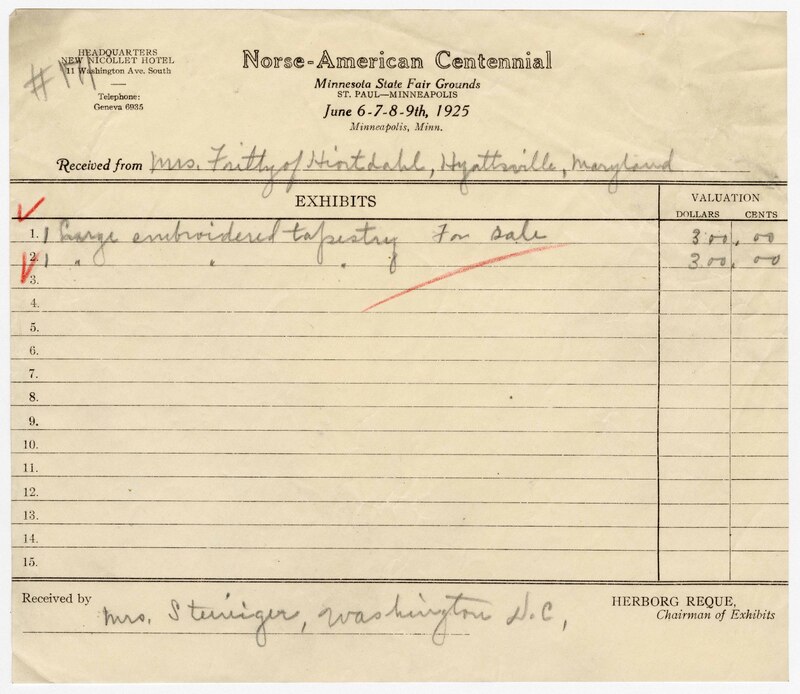 HEADQUARTERS
NEW NICOLLET HOTEL
11 Washington Ave. South
Telephone:
Geneva 6935
Norse-American Centennial
Minnesota State Fair Grounds
ST. PAUL—MINNEAPOLIS
June 6-7-8-9th, 1925
Minneapolis, Minn.
Received from Mrs. Hiortdahl, Hyattsville, Maryland
EXHIBITS
VALUATION
DOLLARS CENTS
1. 1 Large embroidered tapestry For sale 300.00
2. 1 " " " 300.00
3.
4.
5.
6.
7.
8.
9.
10.
11.
12.
13.
14.
15.
Received by Mrs. Steiniger, Washington D.C,
HERBORG REQUE,
Chairman of Exhibits